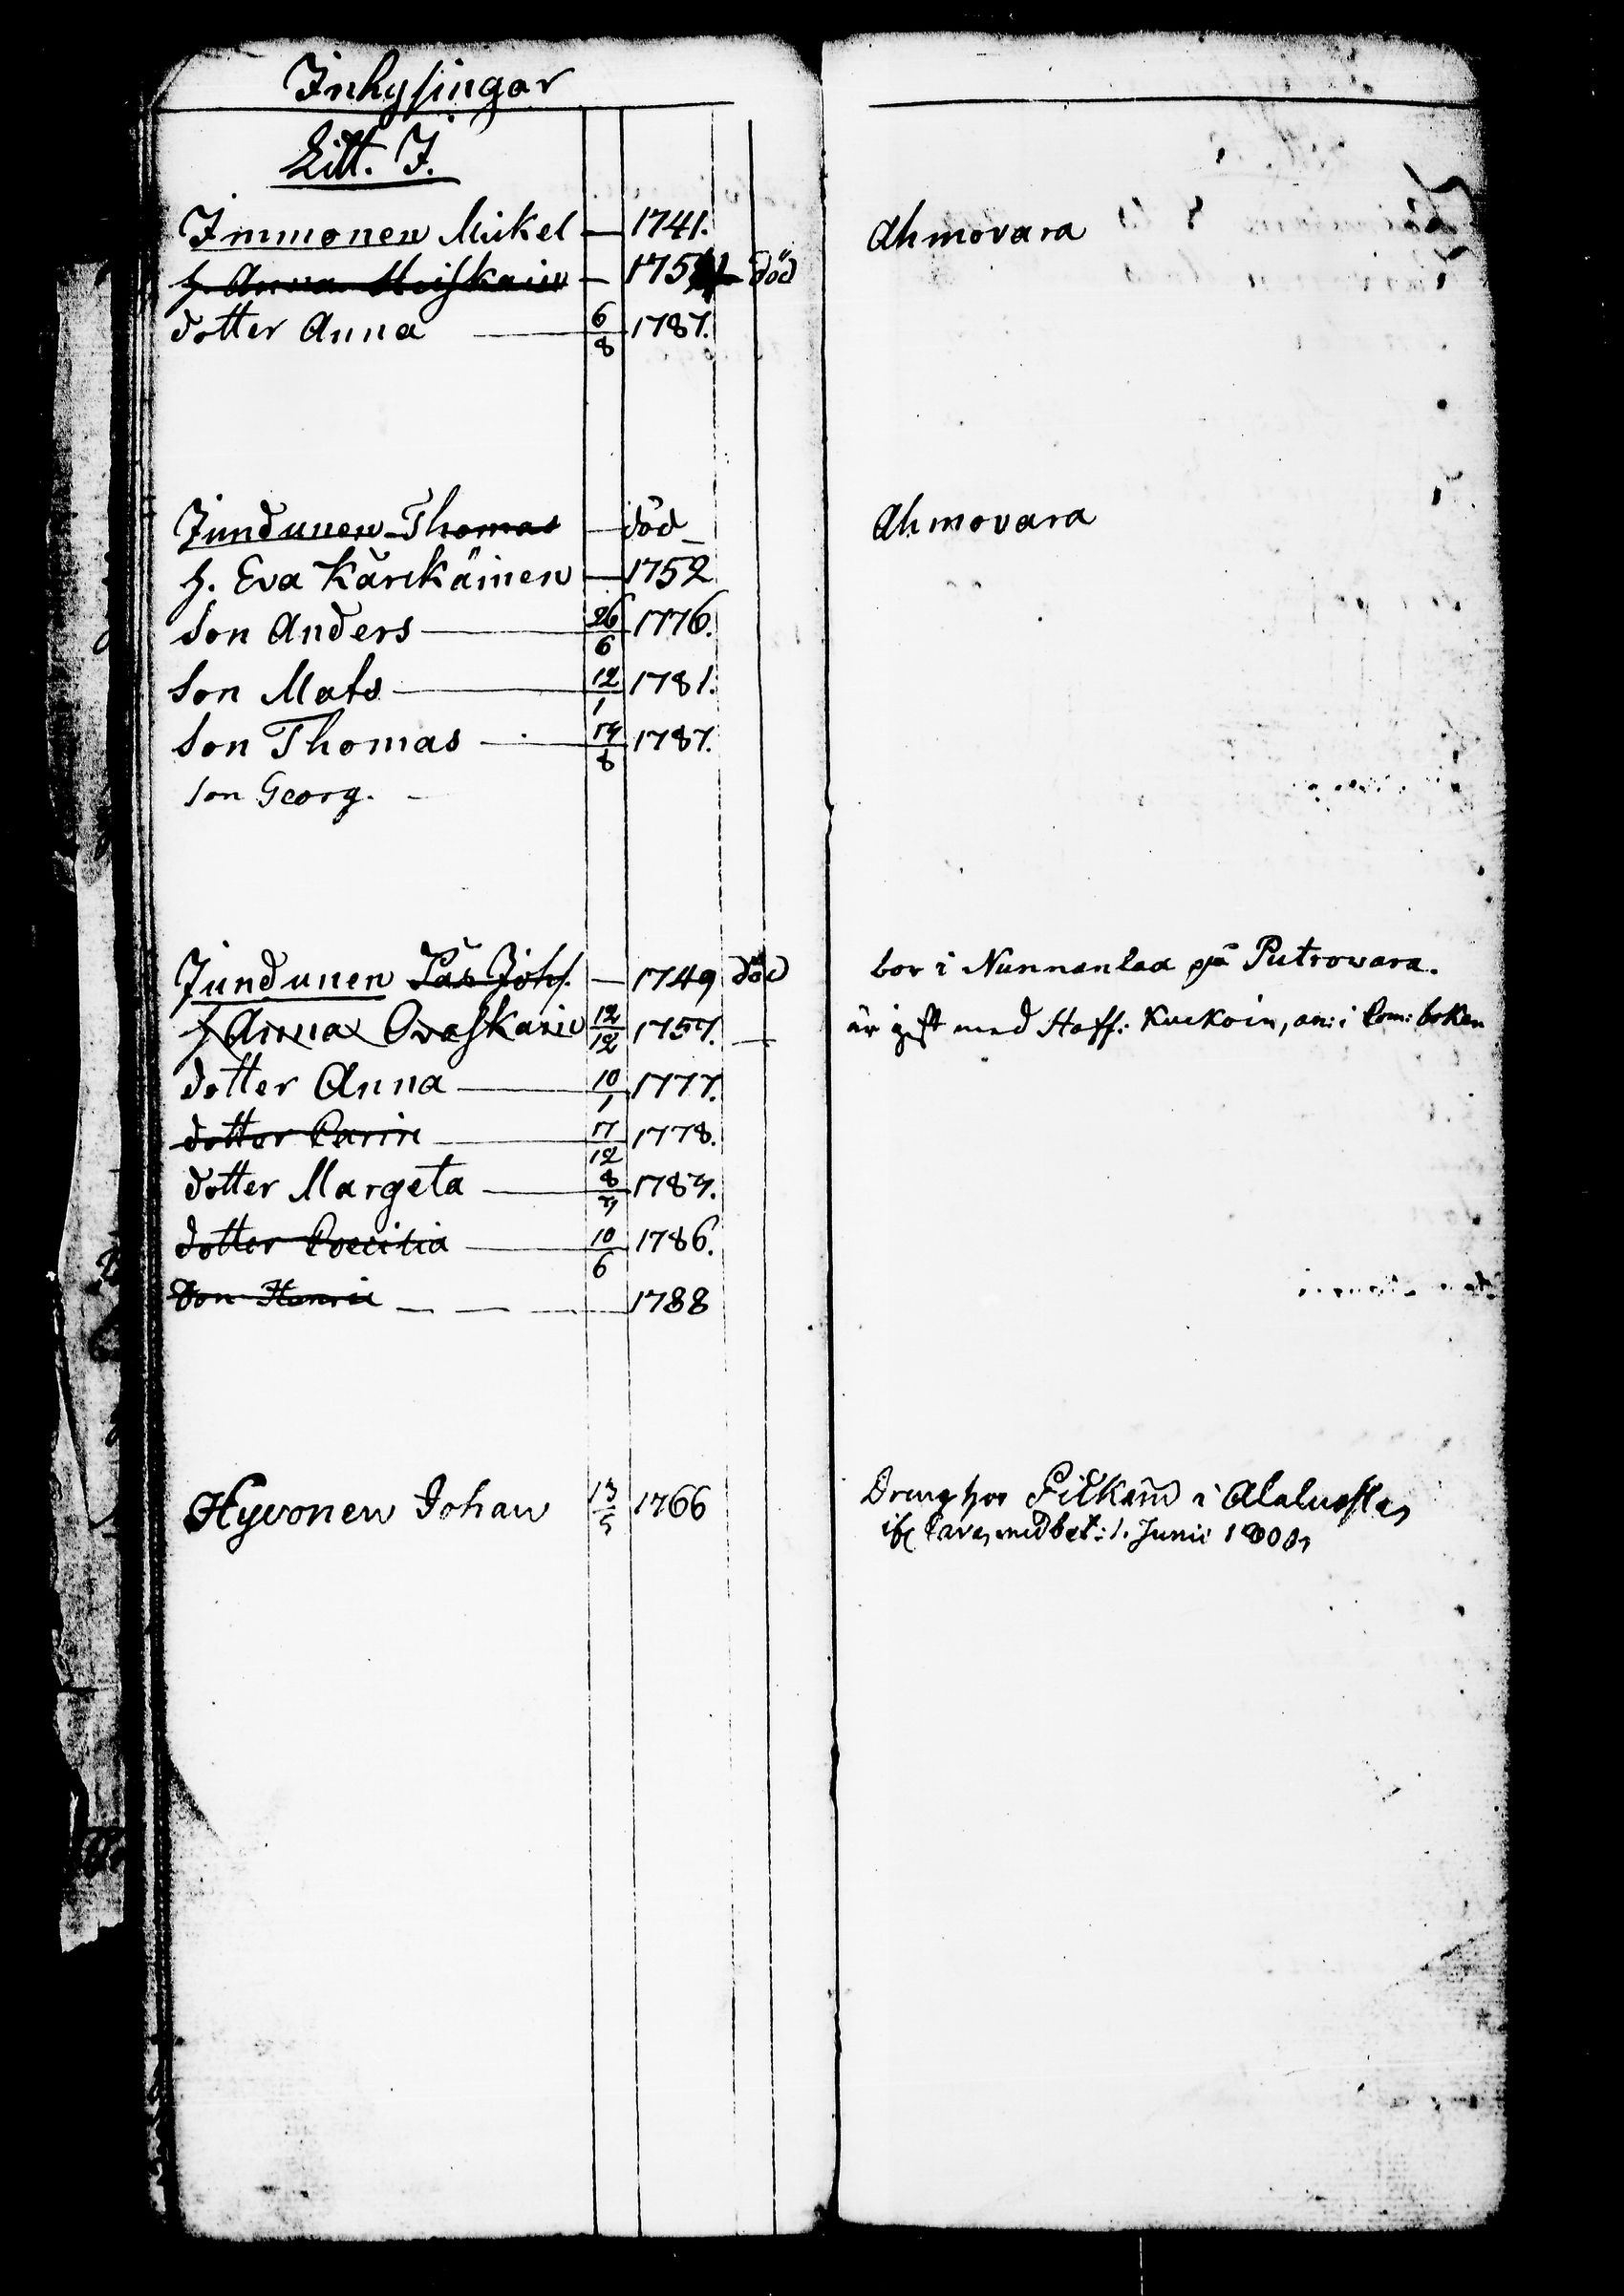 Inhysingar
Litt. I.
Immonen Mickel — 1741. Ahmovara
h. Anna — 175 död
dotter Anna — 6/8 1787.
Jundunen Thomas — död Ahmovara
h. Eva Kärckäinen — 1752
Son Anders — 26/6 1776.
Son Mats — 12/1 1781.
Son Thomas — 8 1787.
son Georg. —
Jundunen Joh. — 1749 död bor i Nunnanlaa på Putrowara.
h Anna Ovaskain 12/12 1757. är gift med Staff: Kuckoin, an: i Com: boken
dotter Anna — 10/1 1777.
dotter Carin — 17/12 1778.
dotter Margeta — 8 178
dotter Coecilia — 10/6 1786.
Son Henric — 1788
Hyvonen Johan 13/5 1766 Dreng hos i
med bet: 1. Junii